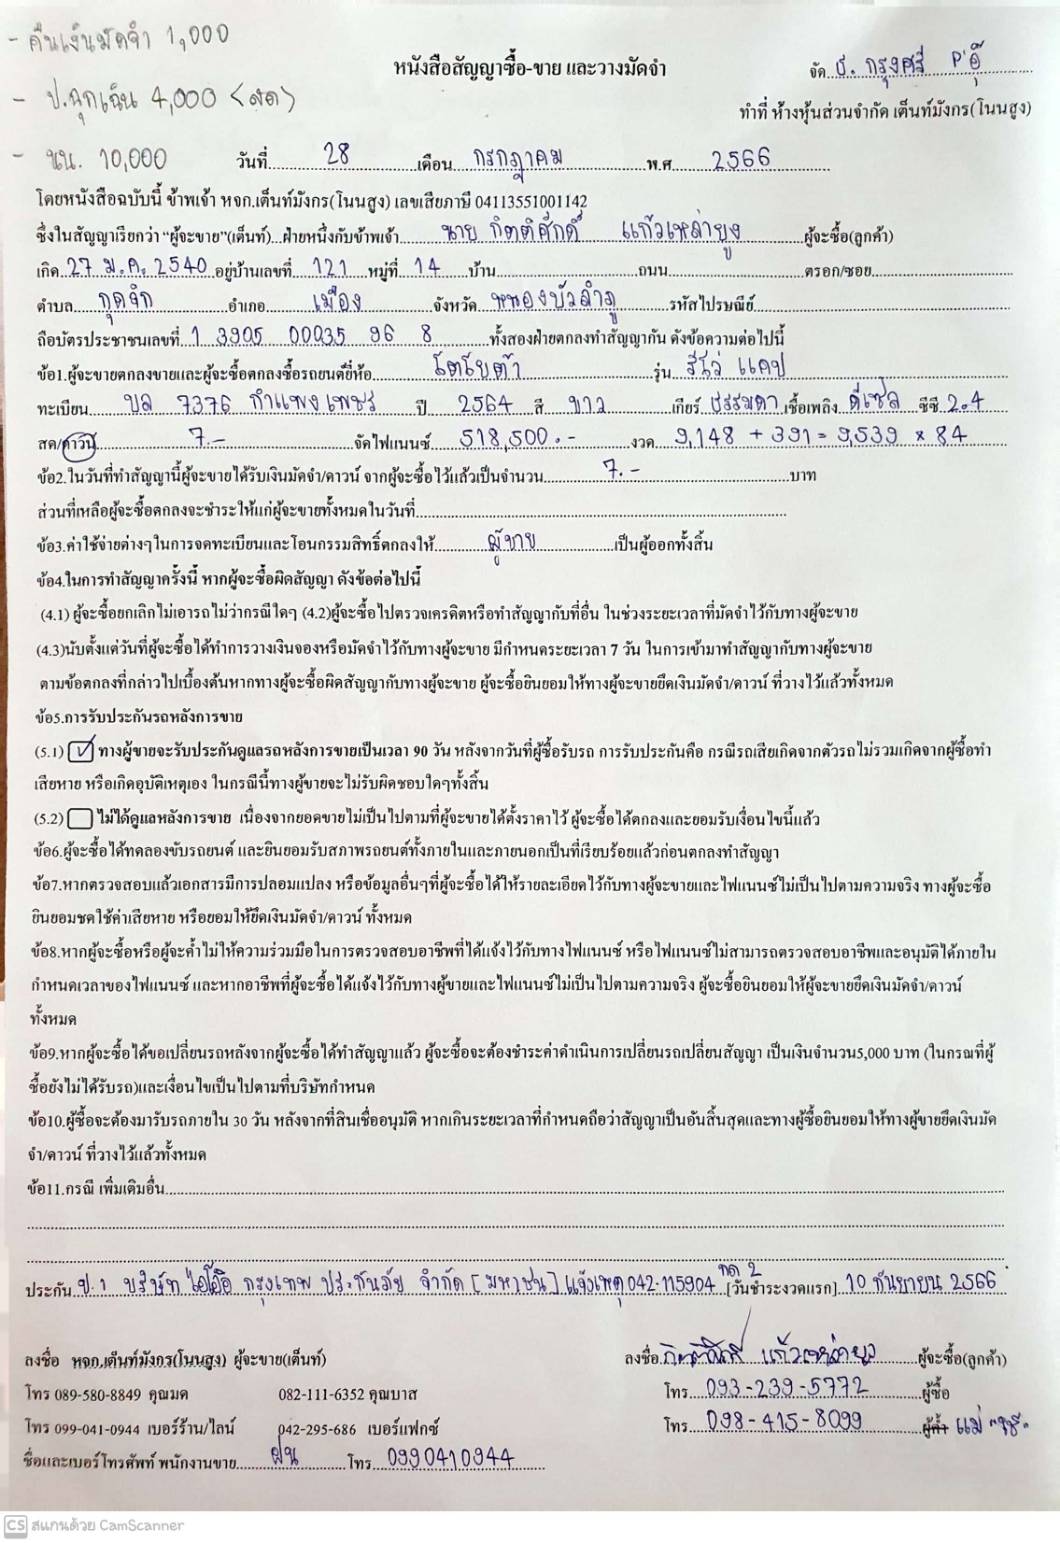 - คืนเงินมัดจำ 1,000
หนังสือสัญญาซื้อ-ขาย และวางมัดจำ
จัด บ. กรุงศรี P'อุ๊
- ป.ฉุกเฉิน 4,000 <สด>
ทำที่ ห้างหุ้นส่วนจำกัด เต็นท์มังกร(โนนสูง)
- นน. 10,000
วันที่ 28 เดือน กรกฎาคม พ.ศ 2566
โดยหนังสือฉบับนี้ ข้าพเจ้า หจก.เต็นท์มังกร(โนนสูง) เลขเสียภาษี 04113551001142
ซึ่งในสัญญาเรียกว่า "ผู้จะขาย"(เต็นท์)...ฝ่ายหนึ่งกับข้าพเจ้า นาย กิตติศักดิ์ แก้วเหล่ายูง ผู้จะซื้อ(ลูกค้า)
เกิด 27 ม.ค. 2540 อยู่บ้านเลขที่ 121 หมู่ที่ 14 บ้าน ถนน ตรอก/ซอย
ตำบล กุดจิก อำเภอ เมือง จังหวัด หนองบัวลำภู รหัสไปรษณีย์
ถือบัตรประชาชนเลขที่ 1 3905 00035 96 8 ทั้งสองฝ่ายตกลงทำสัญญากัน ดังข้อความต่อไปนี้
ข้อ1.ผู้จะขายตกลงขายและผู้จะซื้อตกลงซื้อรถยนต์ยี่ห้อ โตโยต้า รุ่น รีโว่ แคป
ทะเบียน บล 7376 กำแพงเพชร ปี 2564 สี ขาว เกียร์ ธรรมดา เชื้อเพลิง ดีเซล ซีซี 2.4
สด/ดาวน์ 7.- จัดไฟแนนซ์ 518,500.- งวด 9,148 + 391 = 9,539 x 84
ข้อ2.ในวันที่ทำสัญญานี้ผู้จะขายได้รับเงินมัดจำ/ดาวน์ จากผู้จะซื้อไว้แล้วเป็นจำนวน 7.- บาท
ส่วนที่เหลือผู้จะซื้อตกลงจะชำระให้แก่ผู้จะขายทั้งหมดในวันที่
ข้อ3.ค่าใช้จ่ายต่างๆในการจดทะเบียนและโอนกรรมสิทธิ์ตกลงให้ ผู้ขาย เป็นผู้ออกทั้งสิ้น
ข้อ4.ในการทำสัญญาครั้งนี้ หากผู้จะซื้อผิดสัญญา ดังข้อต่อไปนี้
(4.1) ผู้จะซื้อยกเลิกไม่เอารถไม่ว่ากรณีใดๆ (4.2)ผู้จะซื้อไปตรวจเครดิตหรือทำสัญญากับที่อื่น ในช่วงระยะเวลาที่มัดจำไว้กับทางผู้จะขาย
(4.3)นับตั้งแต่วันที่ผู้จะซื้อได้ทำการวางเงินจองหรือมัดจำไว้กับทางผู้จะขาย มีกำหนดระยะเวลา 7 วัน ในการเข้ามาทำสัญญากับทางผู้จะขาย
ตามข้อตกลงที่กล่าวไปเบื้องต้นหากทางผู้จะซื้อผิดสัญญากับทางผู้จะขาย ผู้จะซื้อยินยอมให้ทางผู้จะขายยึดเงินมัดจำ/ดาวน์ ที่วางไว้แล้วทั้งหมด
ข้อ5.การรับประกันรถหลังการขาย
(5.1) ✓ ทางผู้ขายจะรับประกันดูแลรถหลังการขายเป็นเวลา 90 วัน หลังจากวันที่ผู้ซื้อรับรถ การรับประกันคือ กรณีรถเสียเกิดจากตัวรถไม่รวมเกิดจากผู้ซื้อทำ
เสียหาย หรือเกิดอุบัติเหตุเอง ในกรณีนี้ทางผู้ขายจะไม่รับผิดชอบใดๆทั้งสิ้น
(5.2) ไม่ได้ดูแลหลังการขาย เนื่องจากยอดขายไม่เป็นไปตามที่ผู้จะขายได้ตั้งราคาไว้ ผู้จะซื้อได้ตกลงและยอมรับเงื่อนไขนี้แล้ว
ข้อ6.ผู้จะซื้อได้ทดลองขับรถยนต์ และยินยอมรับสภาพรถยนต์ทั้งภายในและภายนอกเป็นที่เรียบร้อยแล้วก่อนตกลงทำสัญญา
ข้อ7.หากตรวจสอบแล้วเอกสารมีการปลอมแปลง หรือข้อมูลอื่นๆที่ผู้จะซื้อได้ให้รายละเอียดไว้กับทางผู้จะขายและไฟแนนซ์ไม่เป็นไปตามความจริง ทางผู้จะซื้อ
ยินยอมชดใช้ค่าเสียหาย หรือยอมให้ยึดเงินมัดจำ/ดาวน์ ทั้งหมด
ข้อ8.หากผู้จะซื้อหรือผู้จะค้ำไม่ให้ความร่วมมือในการตรวจสอบอาชีพที่ได้แจ้งไว้กับทางไฟแนนซ์ หรือไฟแนนซ์ไม่สามารถตรวจสอบอาชีพและอนุมัติได้ภายใน
กำหนดเวลาของไฟแนนซ์ และหากอาชีพที่ผู้จะซื้อได้แจ้งไว้กับทางผู้ขายและไฟแนนซ์ไม่เป็นไปตามความจริง ผู้จะซื้อยินยอมให้ผู้จะขายยึดเงินมัดจำ/ดาวน์
ทั้งหมด
ข้อ9.หากผู้จะซื้อได้ขอเปลี่ยนรถหลังจากผู้จะซื้อได้ทำสัญญาแล้ว ผู้จะซื้อจะต้องชำระค่าดำเนินการเปลี่ยนรถเปลี่ยนสัญญา เป็นเงินจำนวน5,000 บาท (ในกรณที่ผู้
ซื้อยังไม่ได้รับรถ)และเงื่อนไขเป็นไปตามที่บริษัทกำหนด
ข้อ10.ผู้ซื้อจะต้องมารับรถภายใน 30 วัน หลังจากที่สินเชื่ออนุมัติ หากเกินระยะเวลาที่กำหนดถือว่าสัญญาเป็นอันสิ้นสุดและทางผู้ซื้อยินยอมให้ทางผู้ขายยึดเงินมัด
จำ/ดาวน์ ที่วางไว้แล้วทั้งหมด
ข้อ11.กรณี เพิ่มเติมอื่น
ประกัน ป.1 บริษัท ไอโออิ กรุงเทพ ประกันภัย จำกัด [มหาชน] แจ้งเหตุ 042-115904 กด 2 [วันชำระงวดแรก] 10 กันยายน 2566
ลงชื่อ หจก.เต็นท์มังกร(โนนสูง) ผู้จะขาย(เต็นท์)
ลงชื่อ กิตติศักดิ์ แก้วเหล่ายูง ผู้จะซื้อ(ลูกค้า)
โทร 089-580-8849 คุณมด 082-111-6352 คุณบาส
โทร 093-239-5772 ผู้ซื้อ
โทร 099-041-0944 เบอร์ร้าน/ไลน์ 042-295-686 เบอร์แฟกซ์
โทร 098-415-8099 ผู้ค้ำ แม่
ชื่อและเบอร์โทรศัพท์ พนักงานขาย ฝน โทร 0990410944
CS สแกนด้วย CamScanner